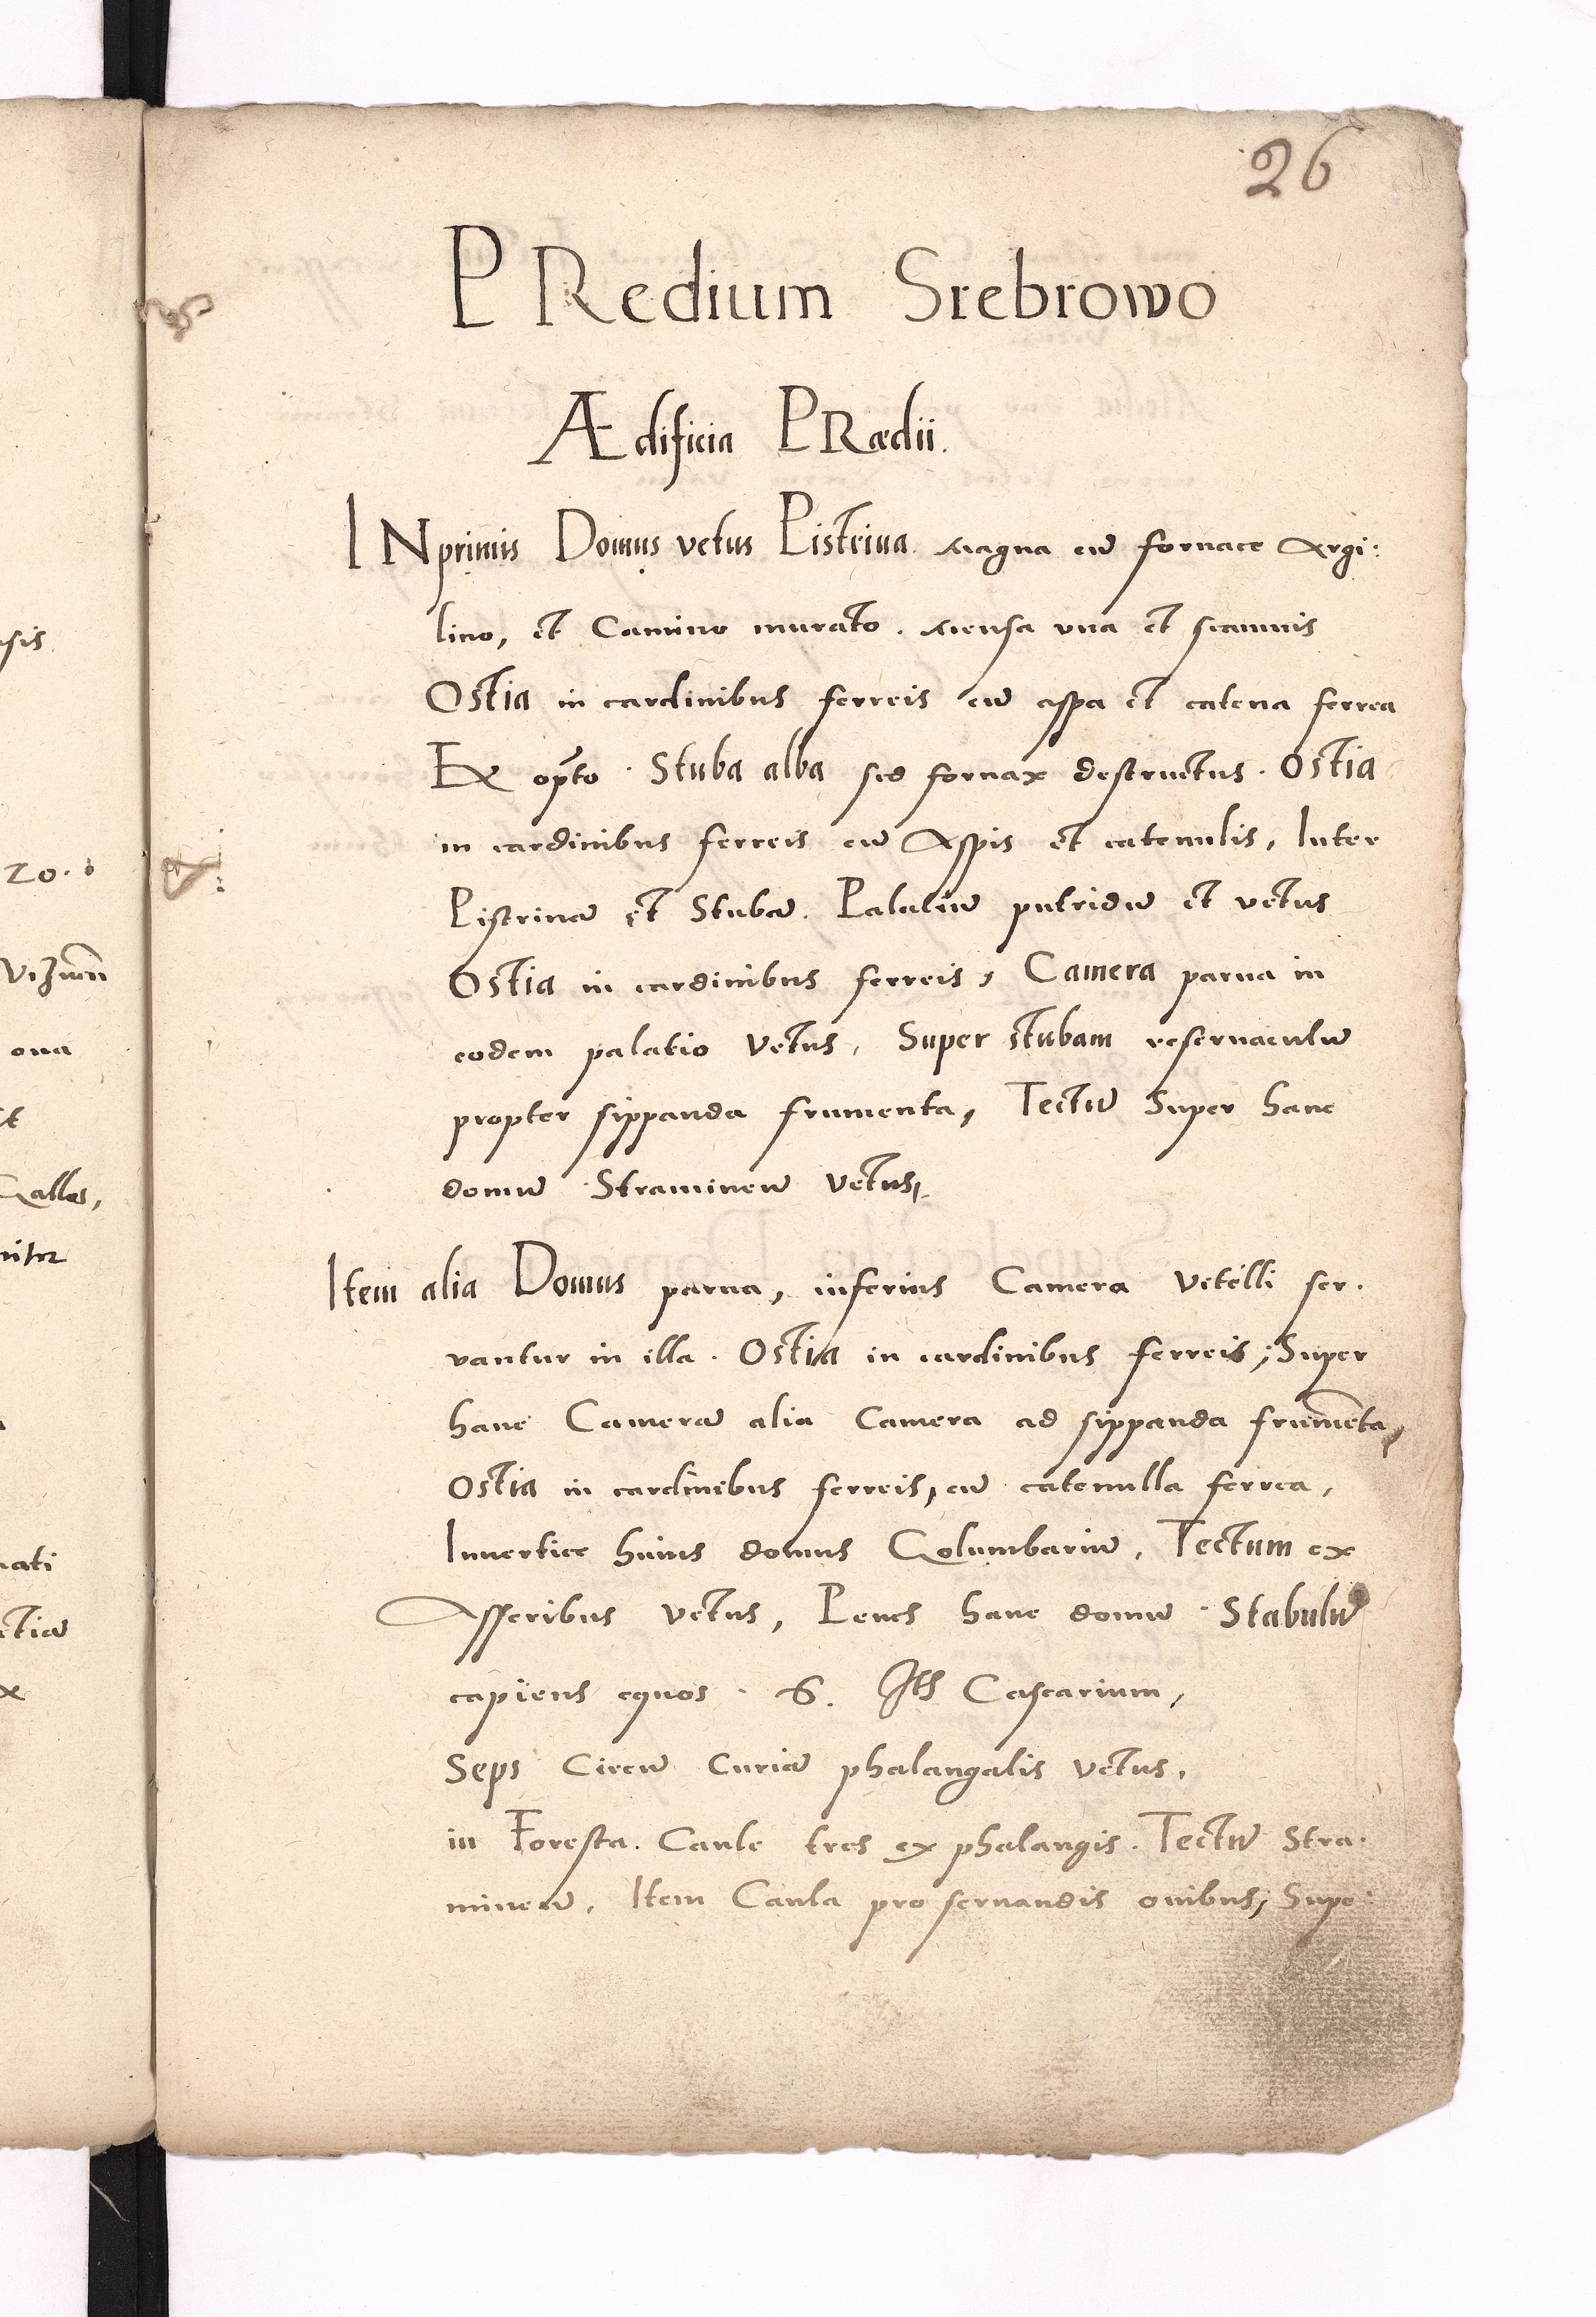 26
PRedium Srebrowo
Ædificia PRædii.
INprimis Domus vetus Pistrina. magna cū fornace Argi:
lino, et Camino murato. mensa vna et scamnis
Ostia in cardinibus ferreis cū aspa et catena ferrea
Ex oppto. Stuba alba sed fornax destructus. Ostia
in cardinibus ferreis cū Aspis et catenulis, Inter
Pistrinā et Stubā. Palatiū putridū et vetus
Ostia in cardinibus ferreis, Camera parua in
eodem palatio vetus, Super stubam reseruaculū
propter sippanda frumenta, Tectū Super hanc
domū Stramineū vetus,
Item alia Domus parua, inferius Camera vetelli ser.
vantur in illa. Ostia in cardinibus ferreis; Super
hanc Camerā alia Camera ad sippanda frumēta,
Ostia in cardinibus ferreis, cū catenulla ferrea,
Inuertice huius domus Columbariū, Tectum ex
Asseribus vetus, Penes hanc domū Stabulū
capiens equos. 6. Cascarium,
Seps Circū Curiā phalangalis vetus,
in Foresta. Caule tres ex phalangis. Tectū Stra.
mineū, Item Caula pro seruandis ouibus, Supe:
asis
20.
oua
Qallos,
niter